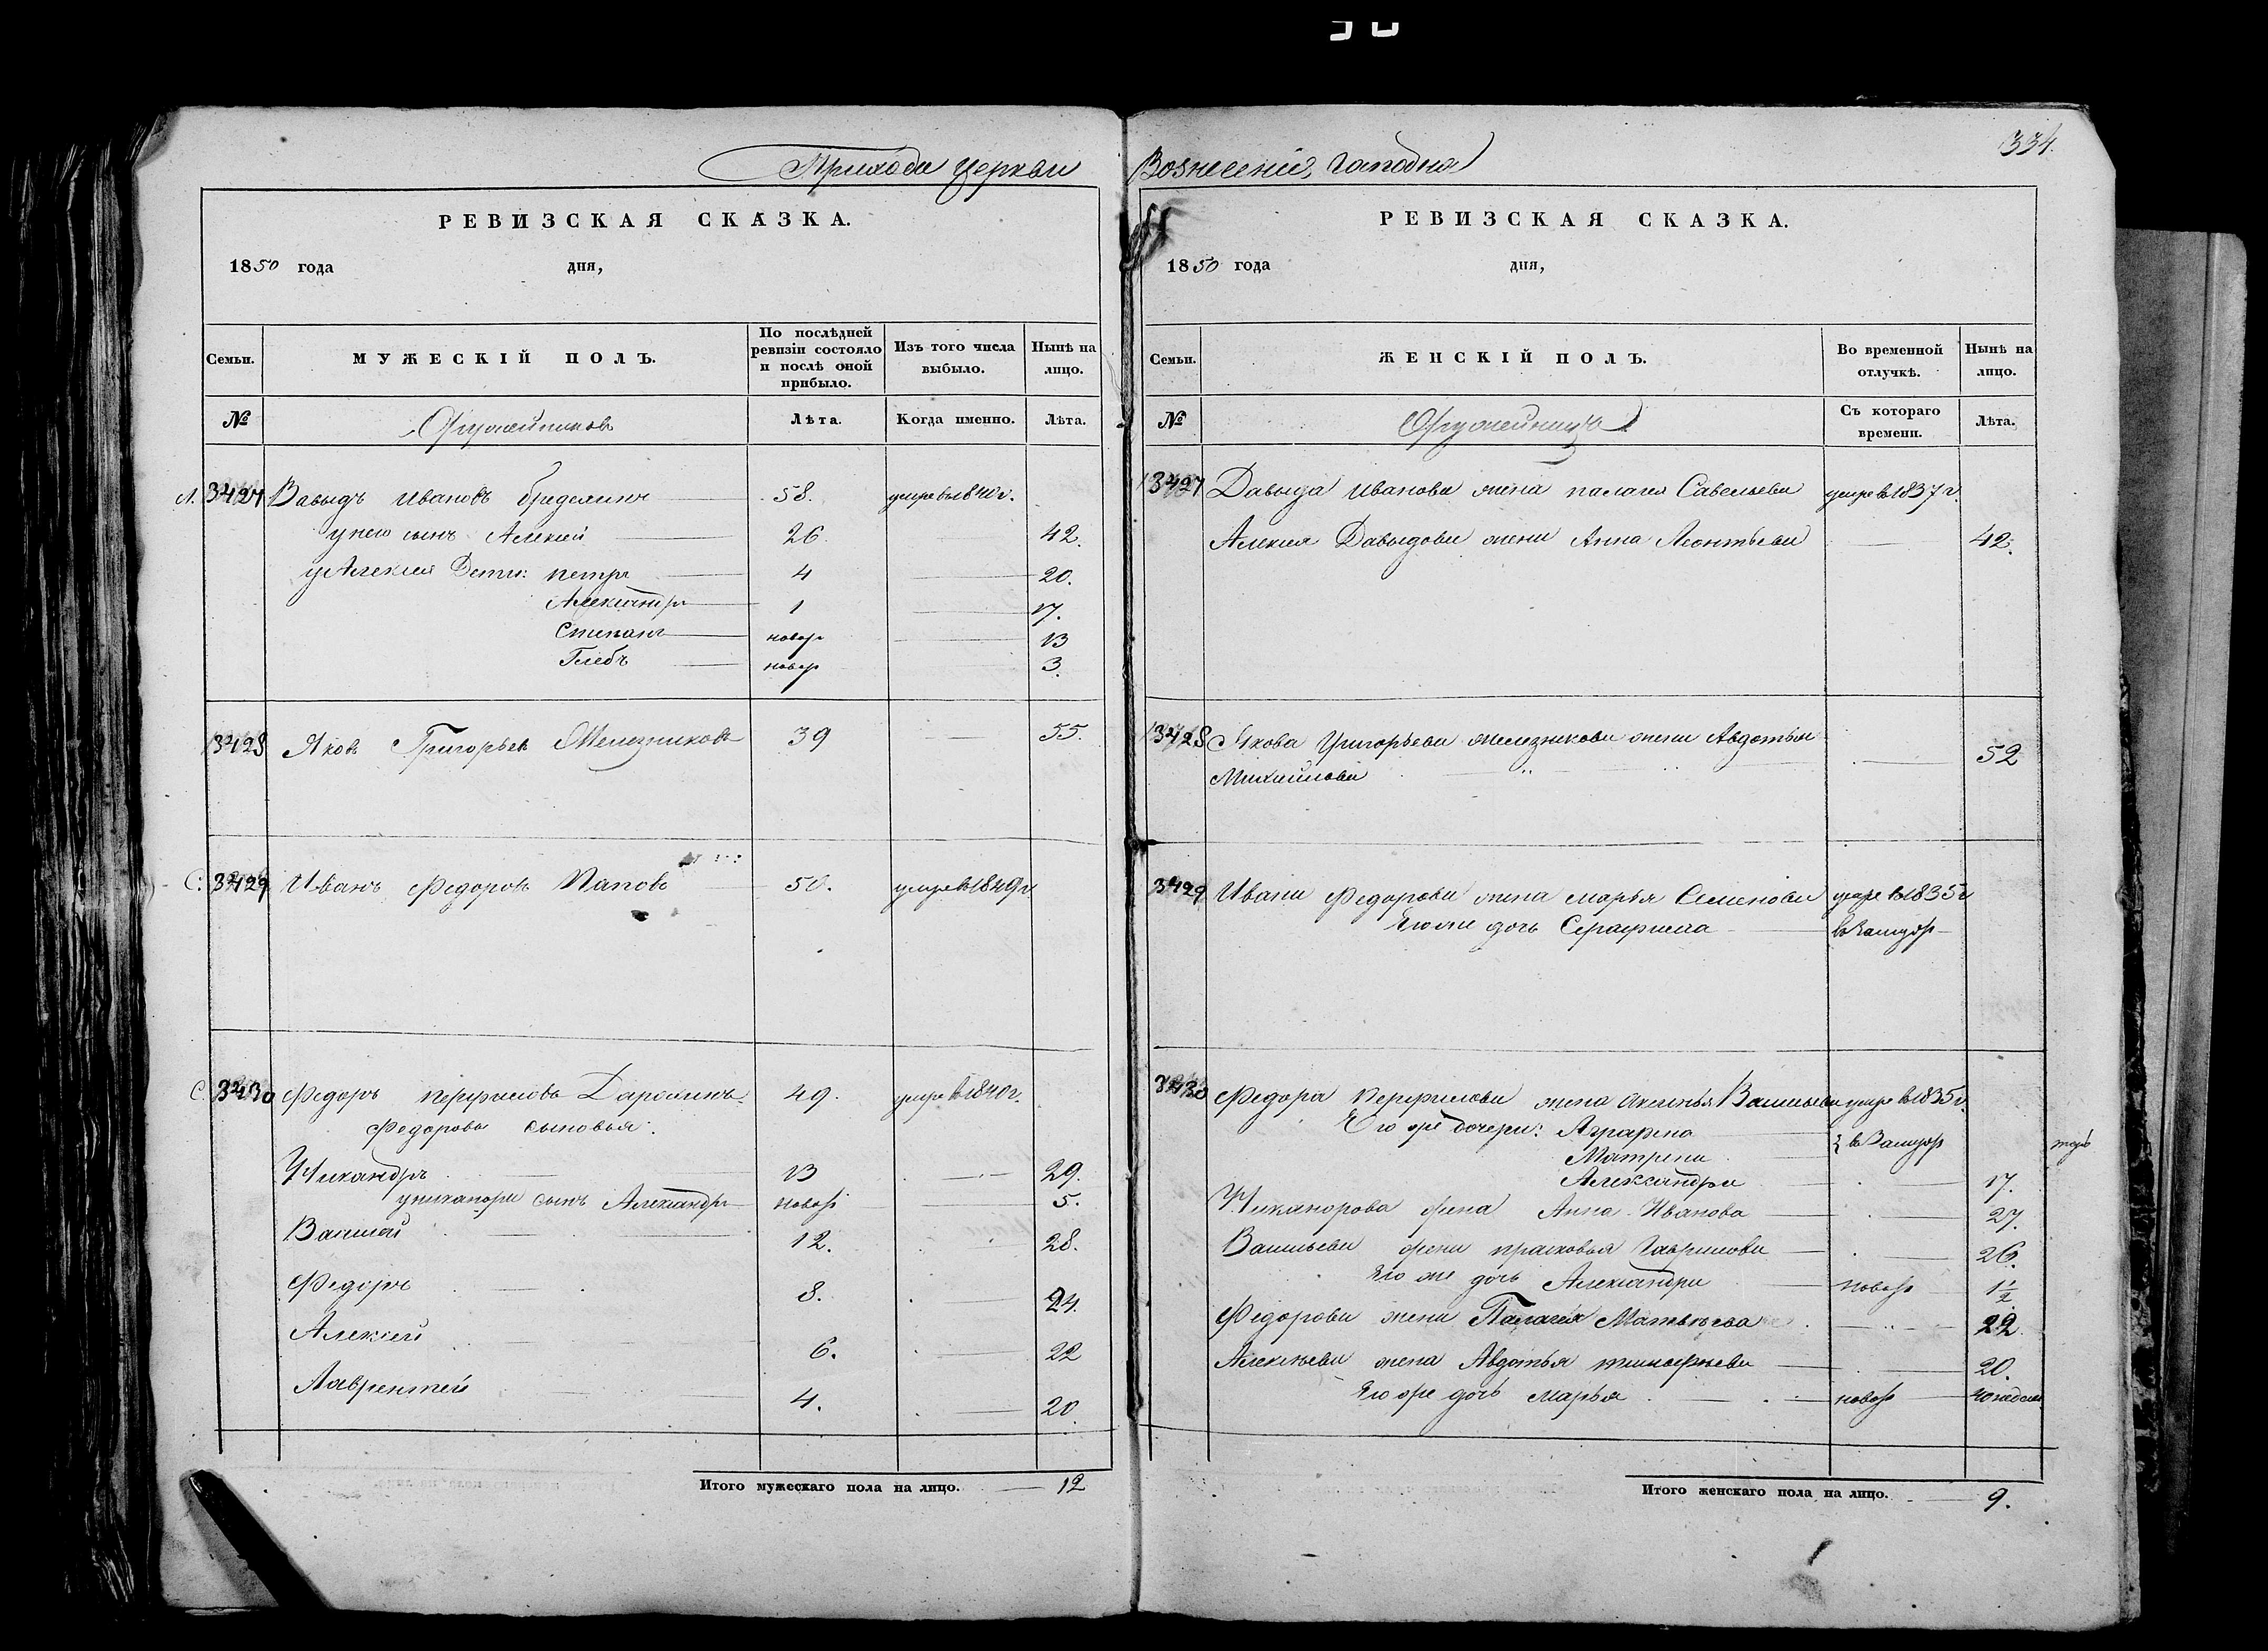 334.
Прихода церкви
РЕВИЗСКАЯ СКАЗКА.
1850 года дня,
Семьи. МУЖЕСКІЙ ПОЛЪ. По послѣдней ревизіи состояло и послѣ оной прибыло. Изъ того числа выбыло. Нынѣ на лицо.
№ Оружейниковъ Лѣта. Когда именно. Лѣта.
Л. 3427 Давыдъ Ивановъ 58. умре въ 1840 г.
у него сынъ Алексей 26. 42.
у Алексея Дети: петръ 4 20.
Александръ 1 17.
Степанъ новор 13
Глебъ новор 3.
3428 Яковъ Григорьев Железниковъ 39 55.
С. 3429 Иванъ Федоровъ Паповъ 50. умре в 1849 г.
С. 3430 Федоръ перфиловъ 49. умре в 1840 г.
Федоровы сыновья:
Никандръ 13 29.
сынъ Александръ новор 5.
Василий 12. 28.
Федоръ 8. 24.
Алексей 6. 22
Лаврентей 4. 20
Итого мужескаго пола на лицо. 12
Вознесенія Господня
РЕВИЗСКАЯ СКАЗКА.
1850 года дня,
Семьи. ЖЕНСКІЙ ПОЛЪ. Во временной отлучкѣ. Нынѣ на лицо.
№ Оружейницъ Съ котораго времени. Лѣта.
3427 Давыда Иванова жена палагея Савельева умре в 1837 г.
Алексея Давыдова жена Анна Леонтьева 42.
3428 Якова Григорьева железникова жена Авдотья
Михайлова 52
3429 Ивана Федорова жена марья Семенова умре в 1835 г
Его же дочь Серафима в замуж
3430 Федора Перфилова жена аксинья Васильева умре в 1835 г.
Его же дочери: Аграфена в Замуж
Матрена
Александра 17.
Никанорова жена Анна Иванова 27.
Васильева жена прасковья Гаврилова 26.
Его же дочь Александра новор 1 1/2
Федорова жена Палагея Матвеева 22.
Алексеева жена Авдотья тимофеева 20.
Его же дочь марья новор
Итого женскаго пола на лицо. 9.